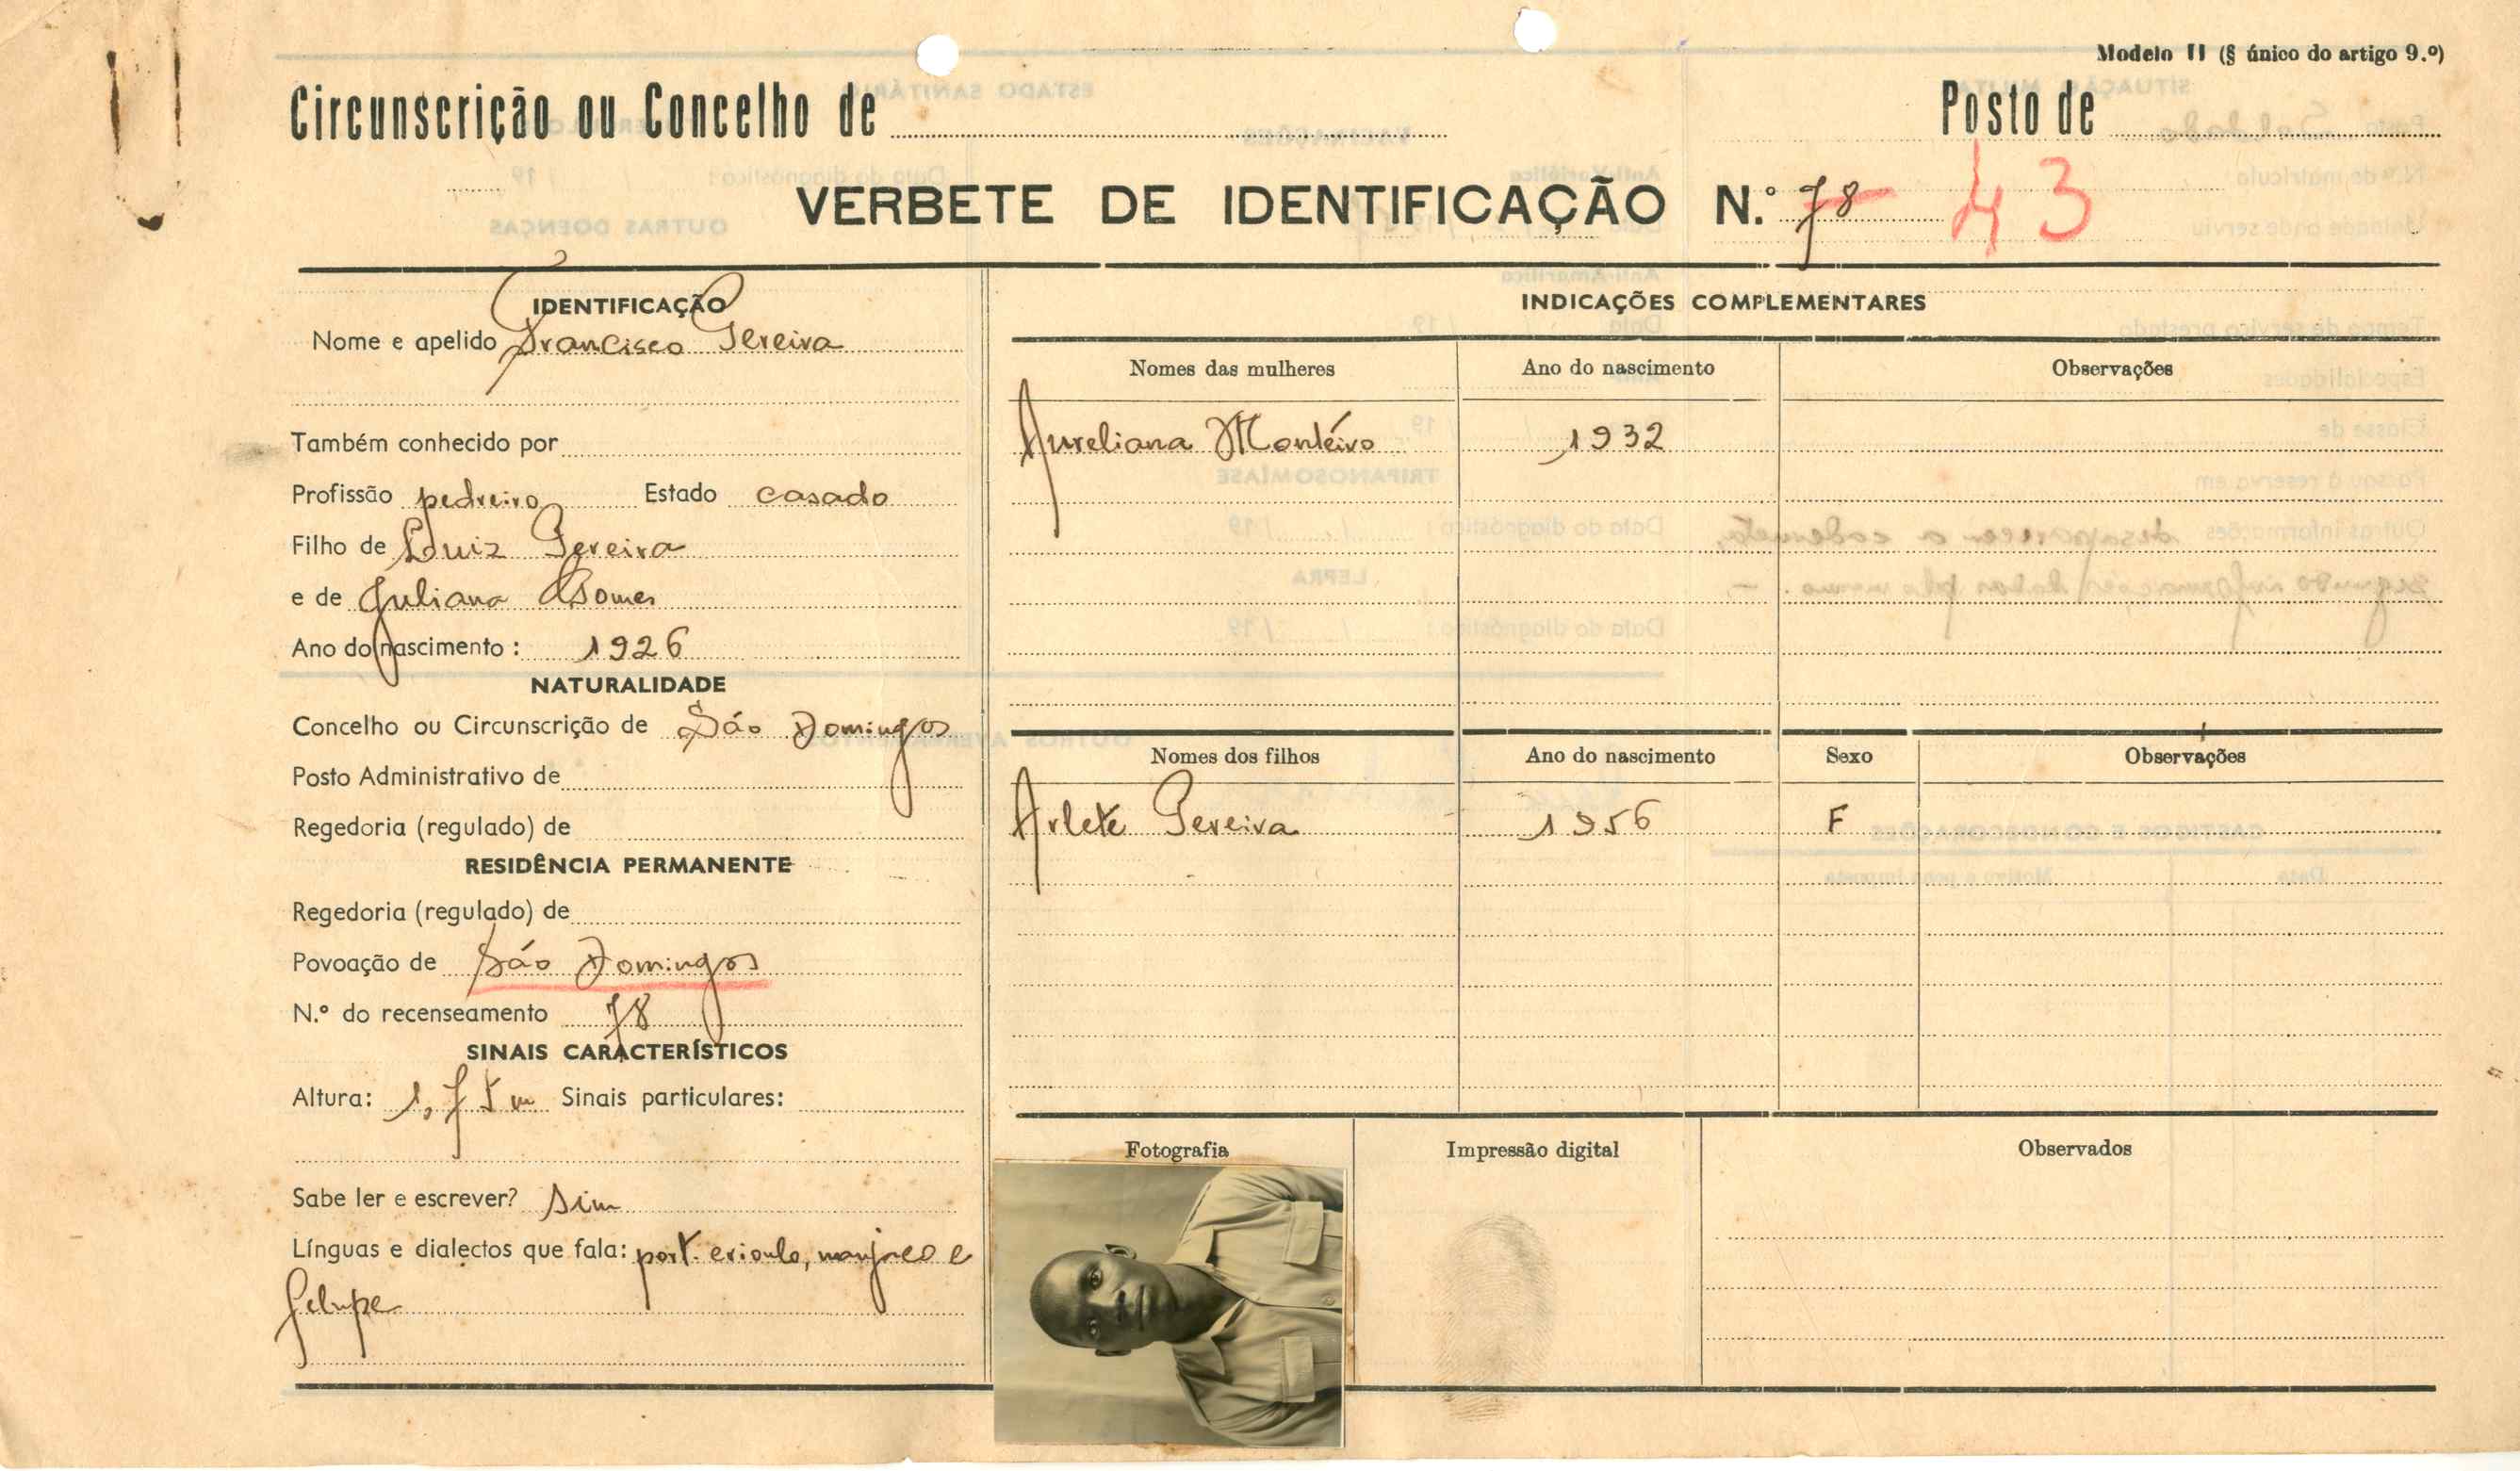 Modelo II (§ único do artigo 9.º)
Circunscrição ou Concelho de
Posto de
VERBETE DE IDENTIFICAÇÃO N.º 78 43
IDENTIFICAÇÃO
Nome e apelido Francisco Pereira
Também conhecido por
Profissão pedreiro Estado casado
Filho de Luiz Pereira
e de Juliana Gomes
Ano do nascimento: 1926
NATURALIDADE
Concelho ou Circunscrição de São Domingos
Posto Administrativo de
Regedoria (regulado) de
RESIDÊNCIA PERMANENTE
Regedoria (regulado) de
Povoação de São Domingos
N.º do recenseamento 78
SINAIS CARACTERÍSTICOS
Altura: 1,75 m Sinais particulares:
Sabe ler e escrever? sim
Línguas e dialectos que fala: port. crioulo, manjaco e
felupe
INDICAÇÕES COMPLEMENTARES
Nomes das mulheres Ano do nascimento Observações
Aureliana Montéiro 1932
Nomes dos filhos Ano do nascimento Sexo Observações
Arlete Pereira 1956 F
Fotografia Impressão digital Observados